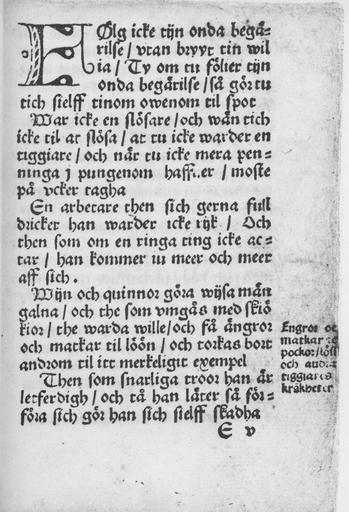 FÖlg icke tijn onda begä-
rilse / vtan bryyt tin wil
ia / Ty om tu fölier tijn
onda begärilse / så gör tu
tich sielff tinom owenom til spot
War icke en slösare / och wän tich
icke til at slösa / at tu icke warder en
tiggiare / och när tu icke mera pen-
ninga j pungenom / moste
på vcker tagha
En arbetare then sich gerna full
dricker han warder icke rijk / Och
then som om en ringa ting icke ac-
tar / han kommer iu meer och meer
aff sich.
Wijn och quinnor göra wijsa män
galna / och the som vmgås med skiö
kior / the warda wille / och få ängror
och matkar til löön / och torkas bort
androm til itt merkeligit exempel
Then som snarliga troor han är
letferdigh / och tå han låter så för-
föra sich gör han sich sielff skadha
E v
Engror oc
matkar
pockor /
och
tiggiar
kräkheter